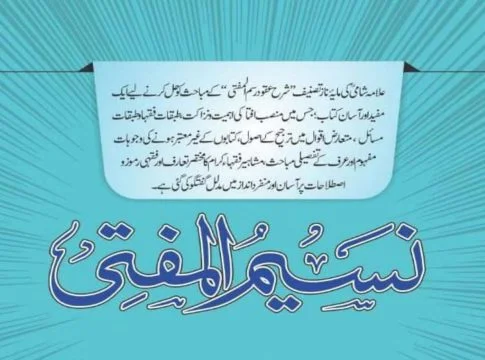 علامہ شامیؒ کی مایہ ناز تصنیف "شرح عقود رسم المفتی" کے مباحث کو حل کرنے لیے ایک
مفید اور آسان کتاب؛ جس میں منصب افتا کی اہمیت ونزاکت، طبقات فقہا وطبقات
مسائل، متعارض اقوال میں ترجیح کے اصول، کتابوں کے غیر معتبر ہونے کی وجوہات
مفہوم اور عرف کے تفصیلی مباحث، مشاہیر فقہاء کرام کا مختصر تعارف اور فقہی رموز و
اصطلاحات پر آسان اور منفرد انداز میں مدلل گفتگو کی گئی ہے۔
نسیم المفتی